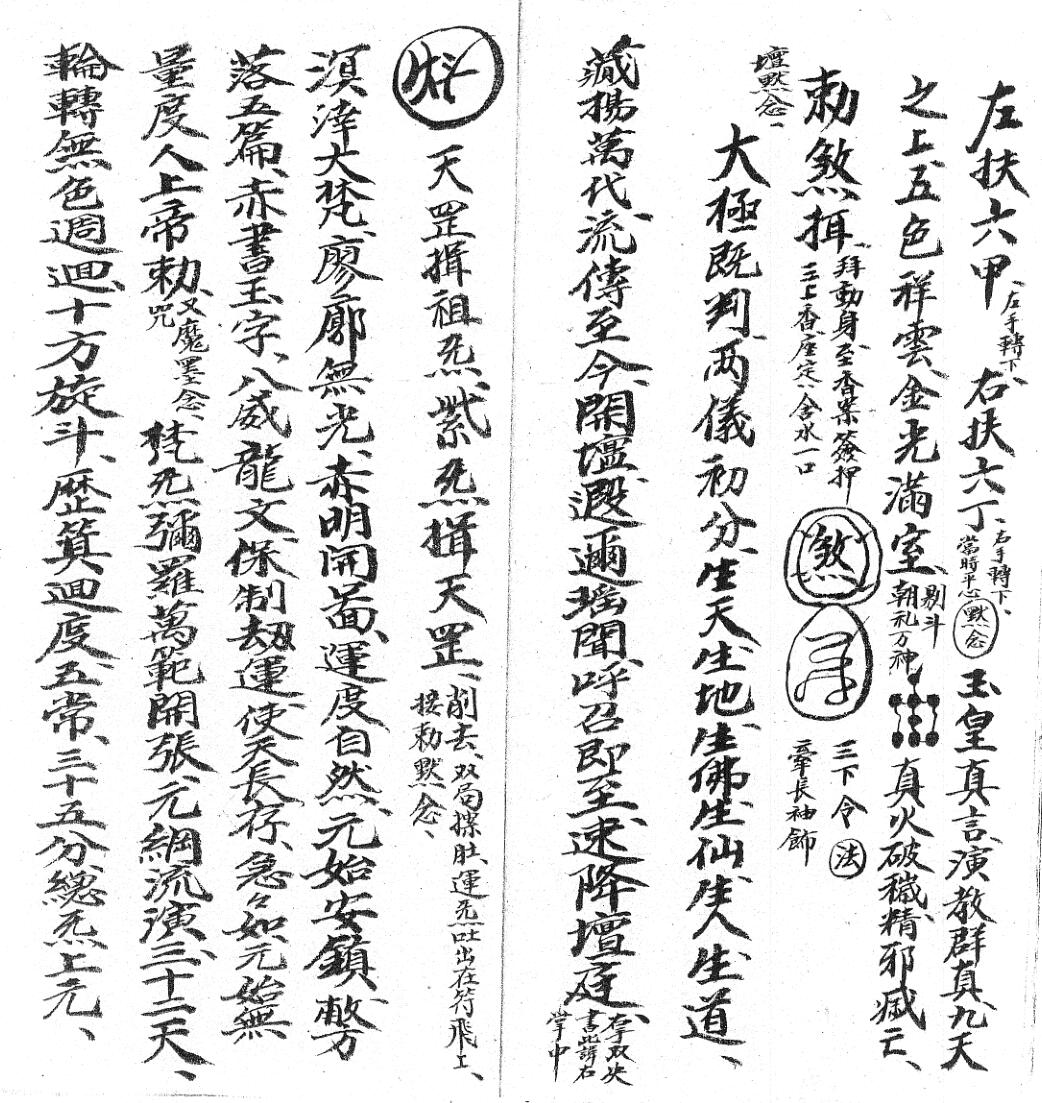 左扶六甲、左手轉下、右扶六丁、右手轉下、當時平心默念玉皇真言、演教群真九天
之上、五色祥雲、金光滿室、剔斗朝礼万神真火破穢、精邪滅亡、
勅煞揖、拜動身至香案簽押三上香座定、含水一口煞三下令法
壇默念、
大極既判、两儀初分、生天生地、生佛生仙、生人生道、
藏揚萬代、流傳至今、開壇遐邇、瑶聞呼召、即至、速降壇庭、書此諱右掌中
天罡揖祖炁、紫炁揖天罡、削去、双局、運炁吐出在符飛工、接勅默念、
溟涬大梵、廖廓無光、赤明開啚、運度自然、元始安鎮、敷
落五篇、赤書玉字、八威龍文、保制劫運、使天長存、急々如元始無
量度人上帝勅、又魔墨念、咒梵炁彌羅、萬範開張、元綱流演、三十二天、
輪轉無色、週迴十方、旋斗歷箕、迴度五常、三十五分、總炁上元、